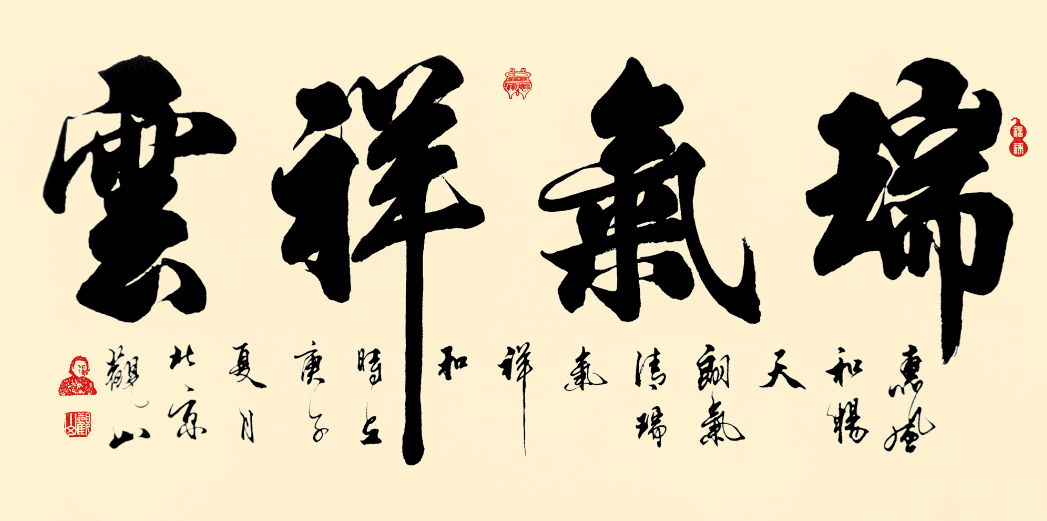 瑞氣祥雲
惠風
和暢
天
朗氣
清瑞
氣
祥
和
時在
庚子
夏月
北京
觀山